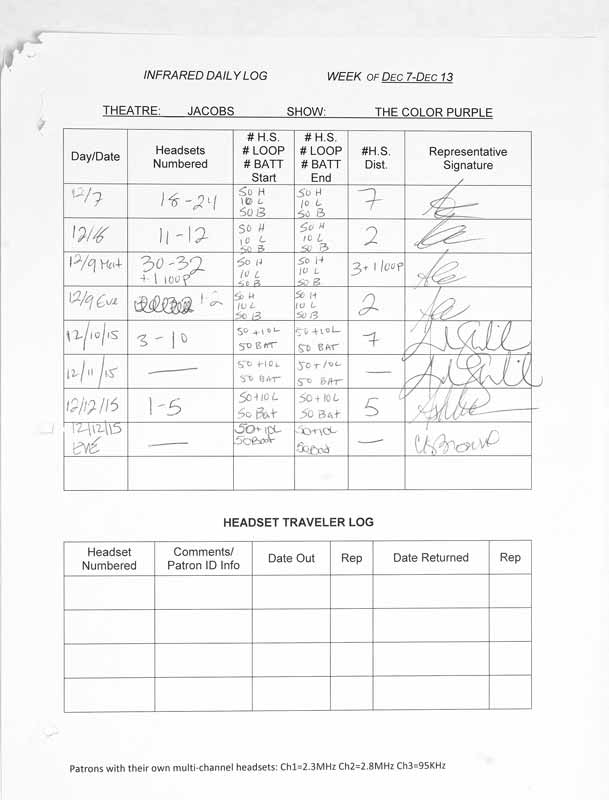 INFRARED DAILY LOG WEEK OF DEC 7-DEC 13
THEATRE: JACOBS SHOW: THE COLOR PURPLE
Day/Date Headsets Numbered # H.S. # LOOP # BATT Start # H.S. # LOOP # BATT End #H.S. Dist. Representative Signature
12/7 18-24 50 H 10 L 50 B 50 H 10 L 50 B 7
12/8 11-12 50 H 10 L 50 B 50 H 10 L 50 B 2
12/9 Mat 30-32 + 1 loop 50 H 10 L 50 B 50 H 10 L 50 B 3 + 1 loop
12/9 Eve 1-2 50 H 10 L 50 B 50 H 10 L 50 B 2
12/10/15 3-10 50+10L 50 BAT 50+10L 50 BAT 7
12/11/15 — 50+10L 50 BAT 50+10L 50 BAT —
12/12/15 1-5 50+10L 50 Bat 50+10L 50 Bat 5
12/12/15 EVE — 50+10L 50Bat 50+10L 50Bat —
HEADSET TRAVELER LOG
Headset Numbered Comments/ Patron ID Info Date Out Rep Date Returned Rep
Patrons with their own multi-channel headsets: Ch1=2.3MHz Ch2=2.8MHz Ch3=95KHz